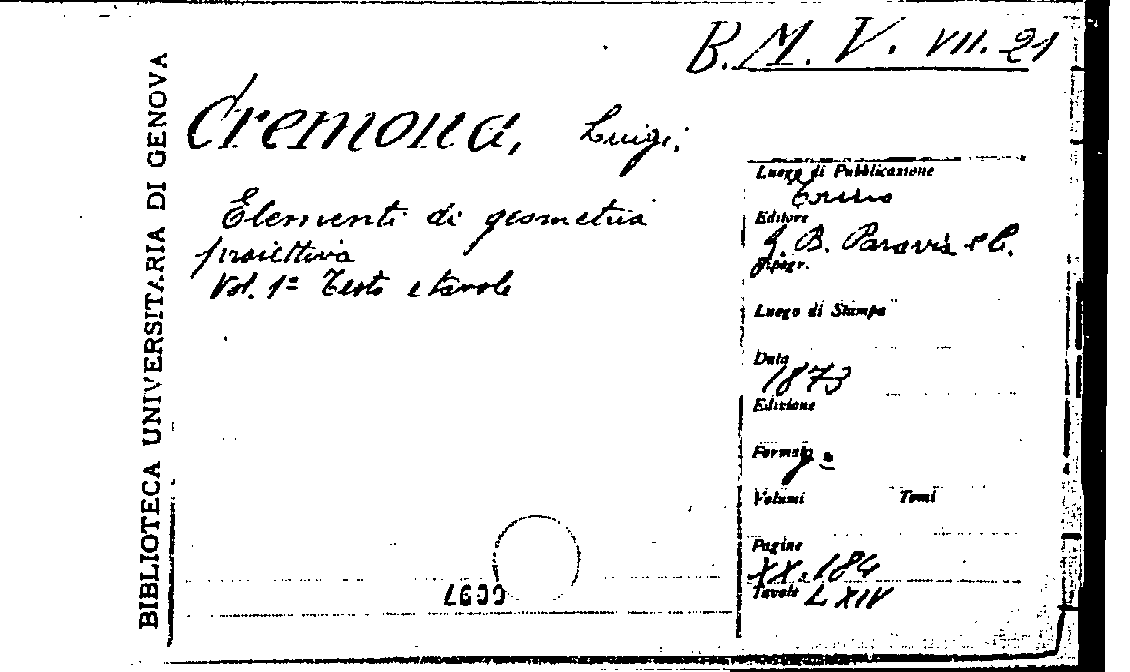 B.M.V. VII. 21
BIBLIOTECA UNIVERSITARIA DI GENOVA
Cremona, Luigi.
Elementi di geometria
proiettiva
Vol. 1º Testo e tavole
Luogo di Pubblicazione
Torino
Editore
G. B. Paravia e C.
Tipogr.
Luogo di Stampa
Data
1873
Edizione
Formato
Volumi Tomi
Pagine
XX, 184
Tavole LXIV